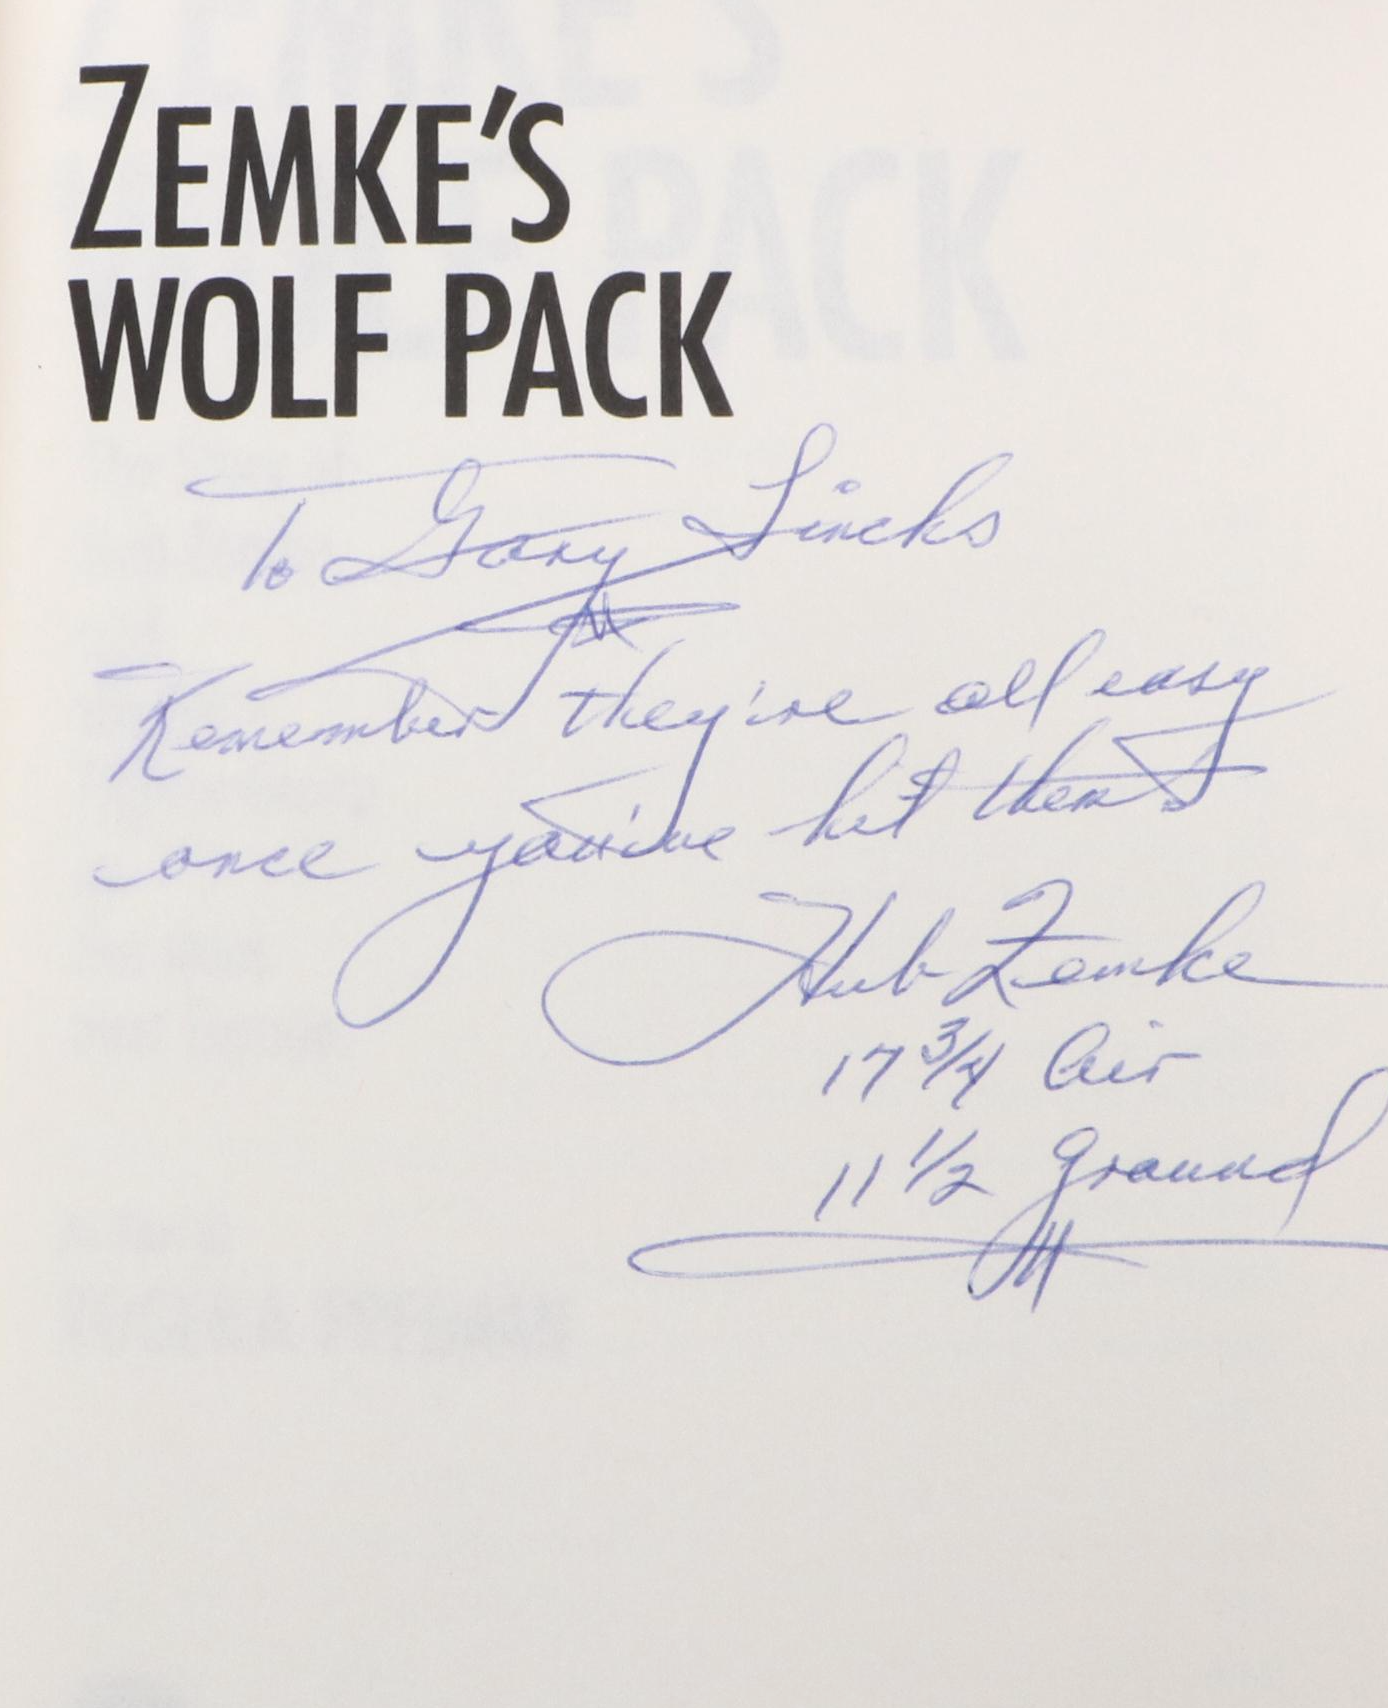 ZEMKE'S
WOLF PACK
To Gary Lincks
Remember they're all easy
once you've hit them
Hub Zemke
17 3/4 Air
11 1/2 ground